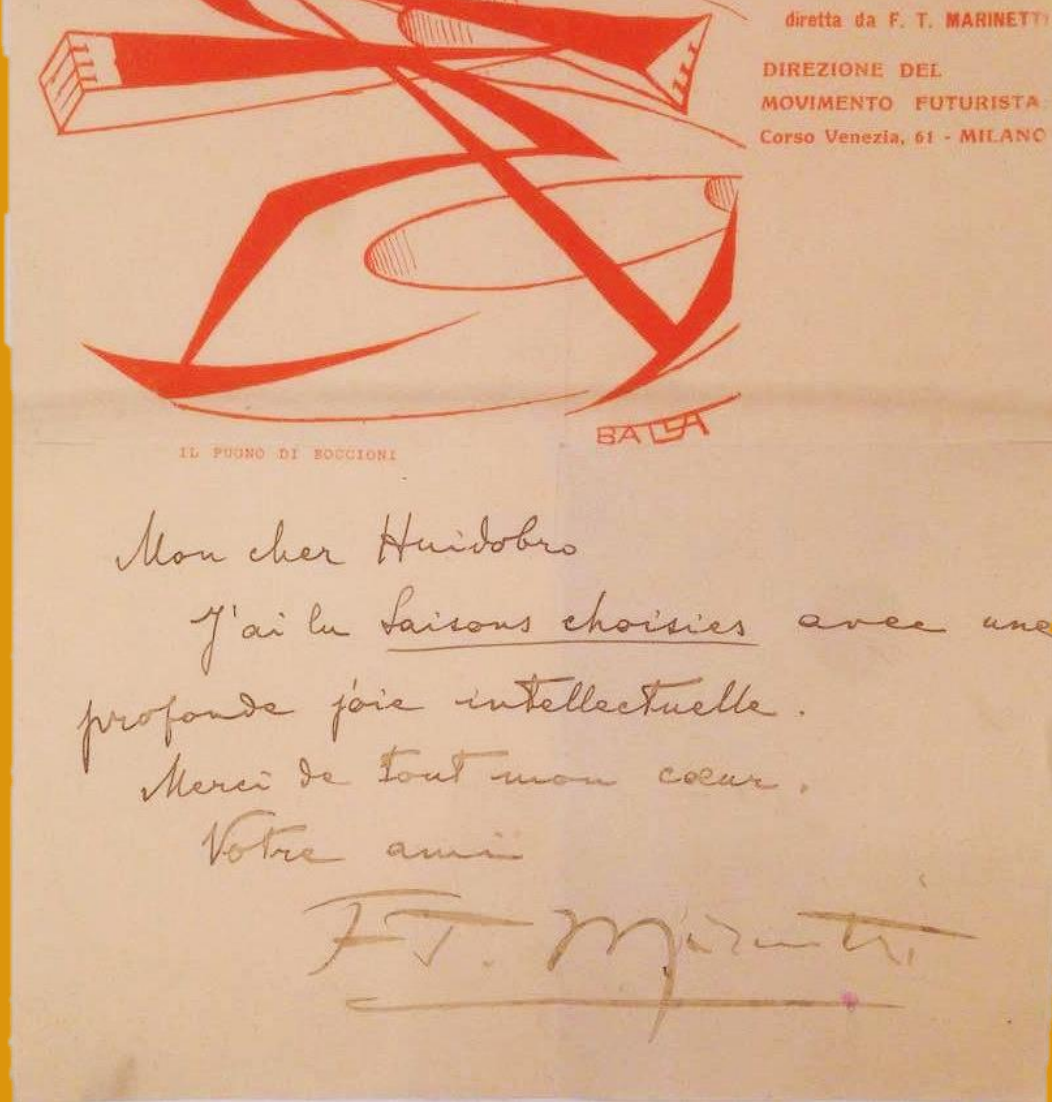 diretta da F. T. MARINETTI
DIREZIONE DEL
MOVIMENTO FUTURISTA
Corso Venezia, 61 - MILANO
BALLA
IL PUGNO DI BOCCIONI
Mon cher Huidobro
J'ai lu Saisons choisies avec une
profonde joie intellectuelle.
Merci de tout mon cœur.
Votre ami
F. T. Marinetti